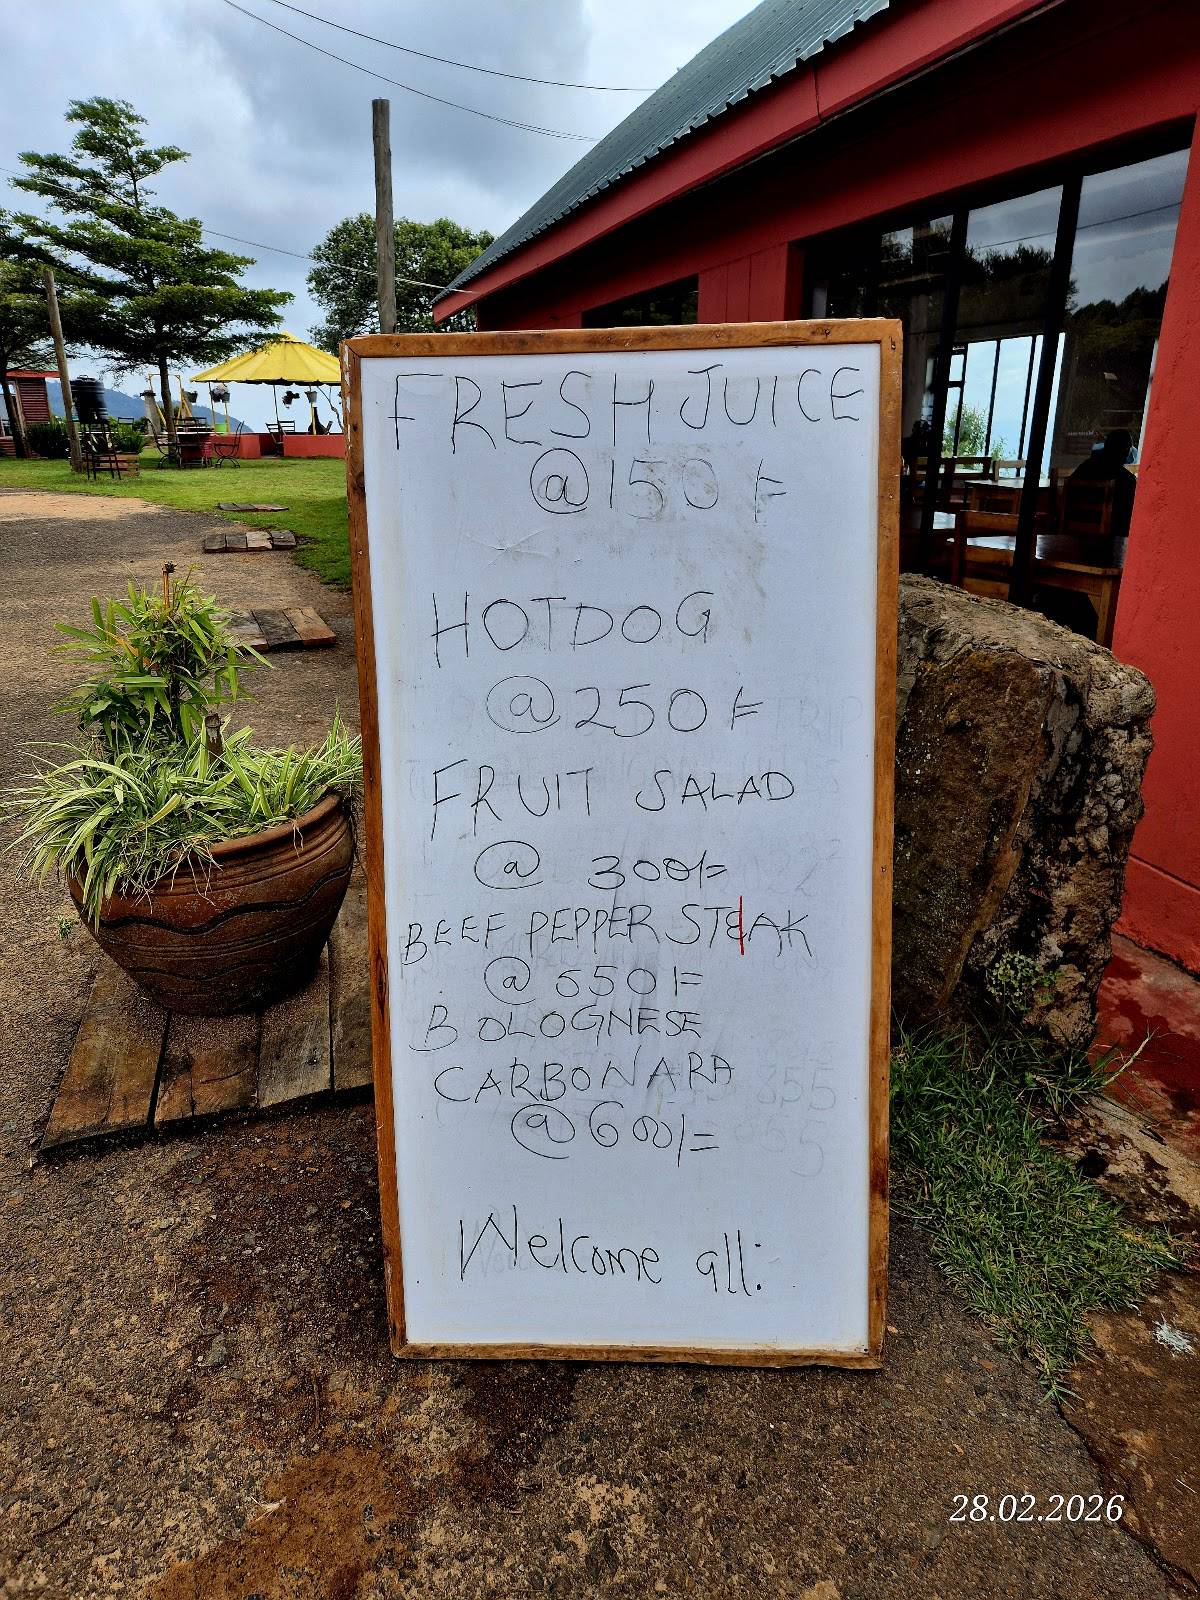 FRESH JUICE
@150/=
HOTDOG
@250/=
FRUIT SALAD
@ 300/=
BEEF PEPPER STEAK
@ 550/=
BOLOGNESE
CARBONARA
@600/=
Welcome all:
28.02.2026